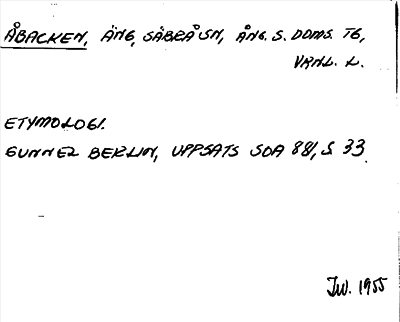 ÅBACKEN, ÄNG, SÄBRÅ SN, ÅNG. S. DOMS. TG,
VRNL. L.
ETYMOLOGI.
GUNNEL BERLIN, UPPSATS SOA 881, S 33.
JW. 1955